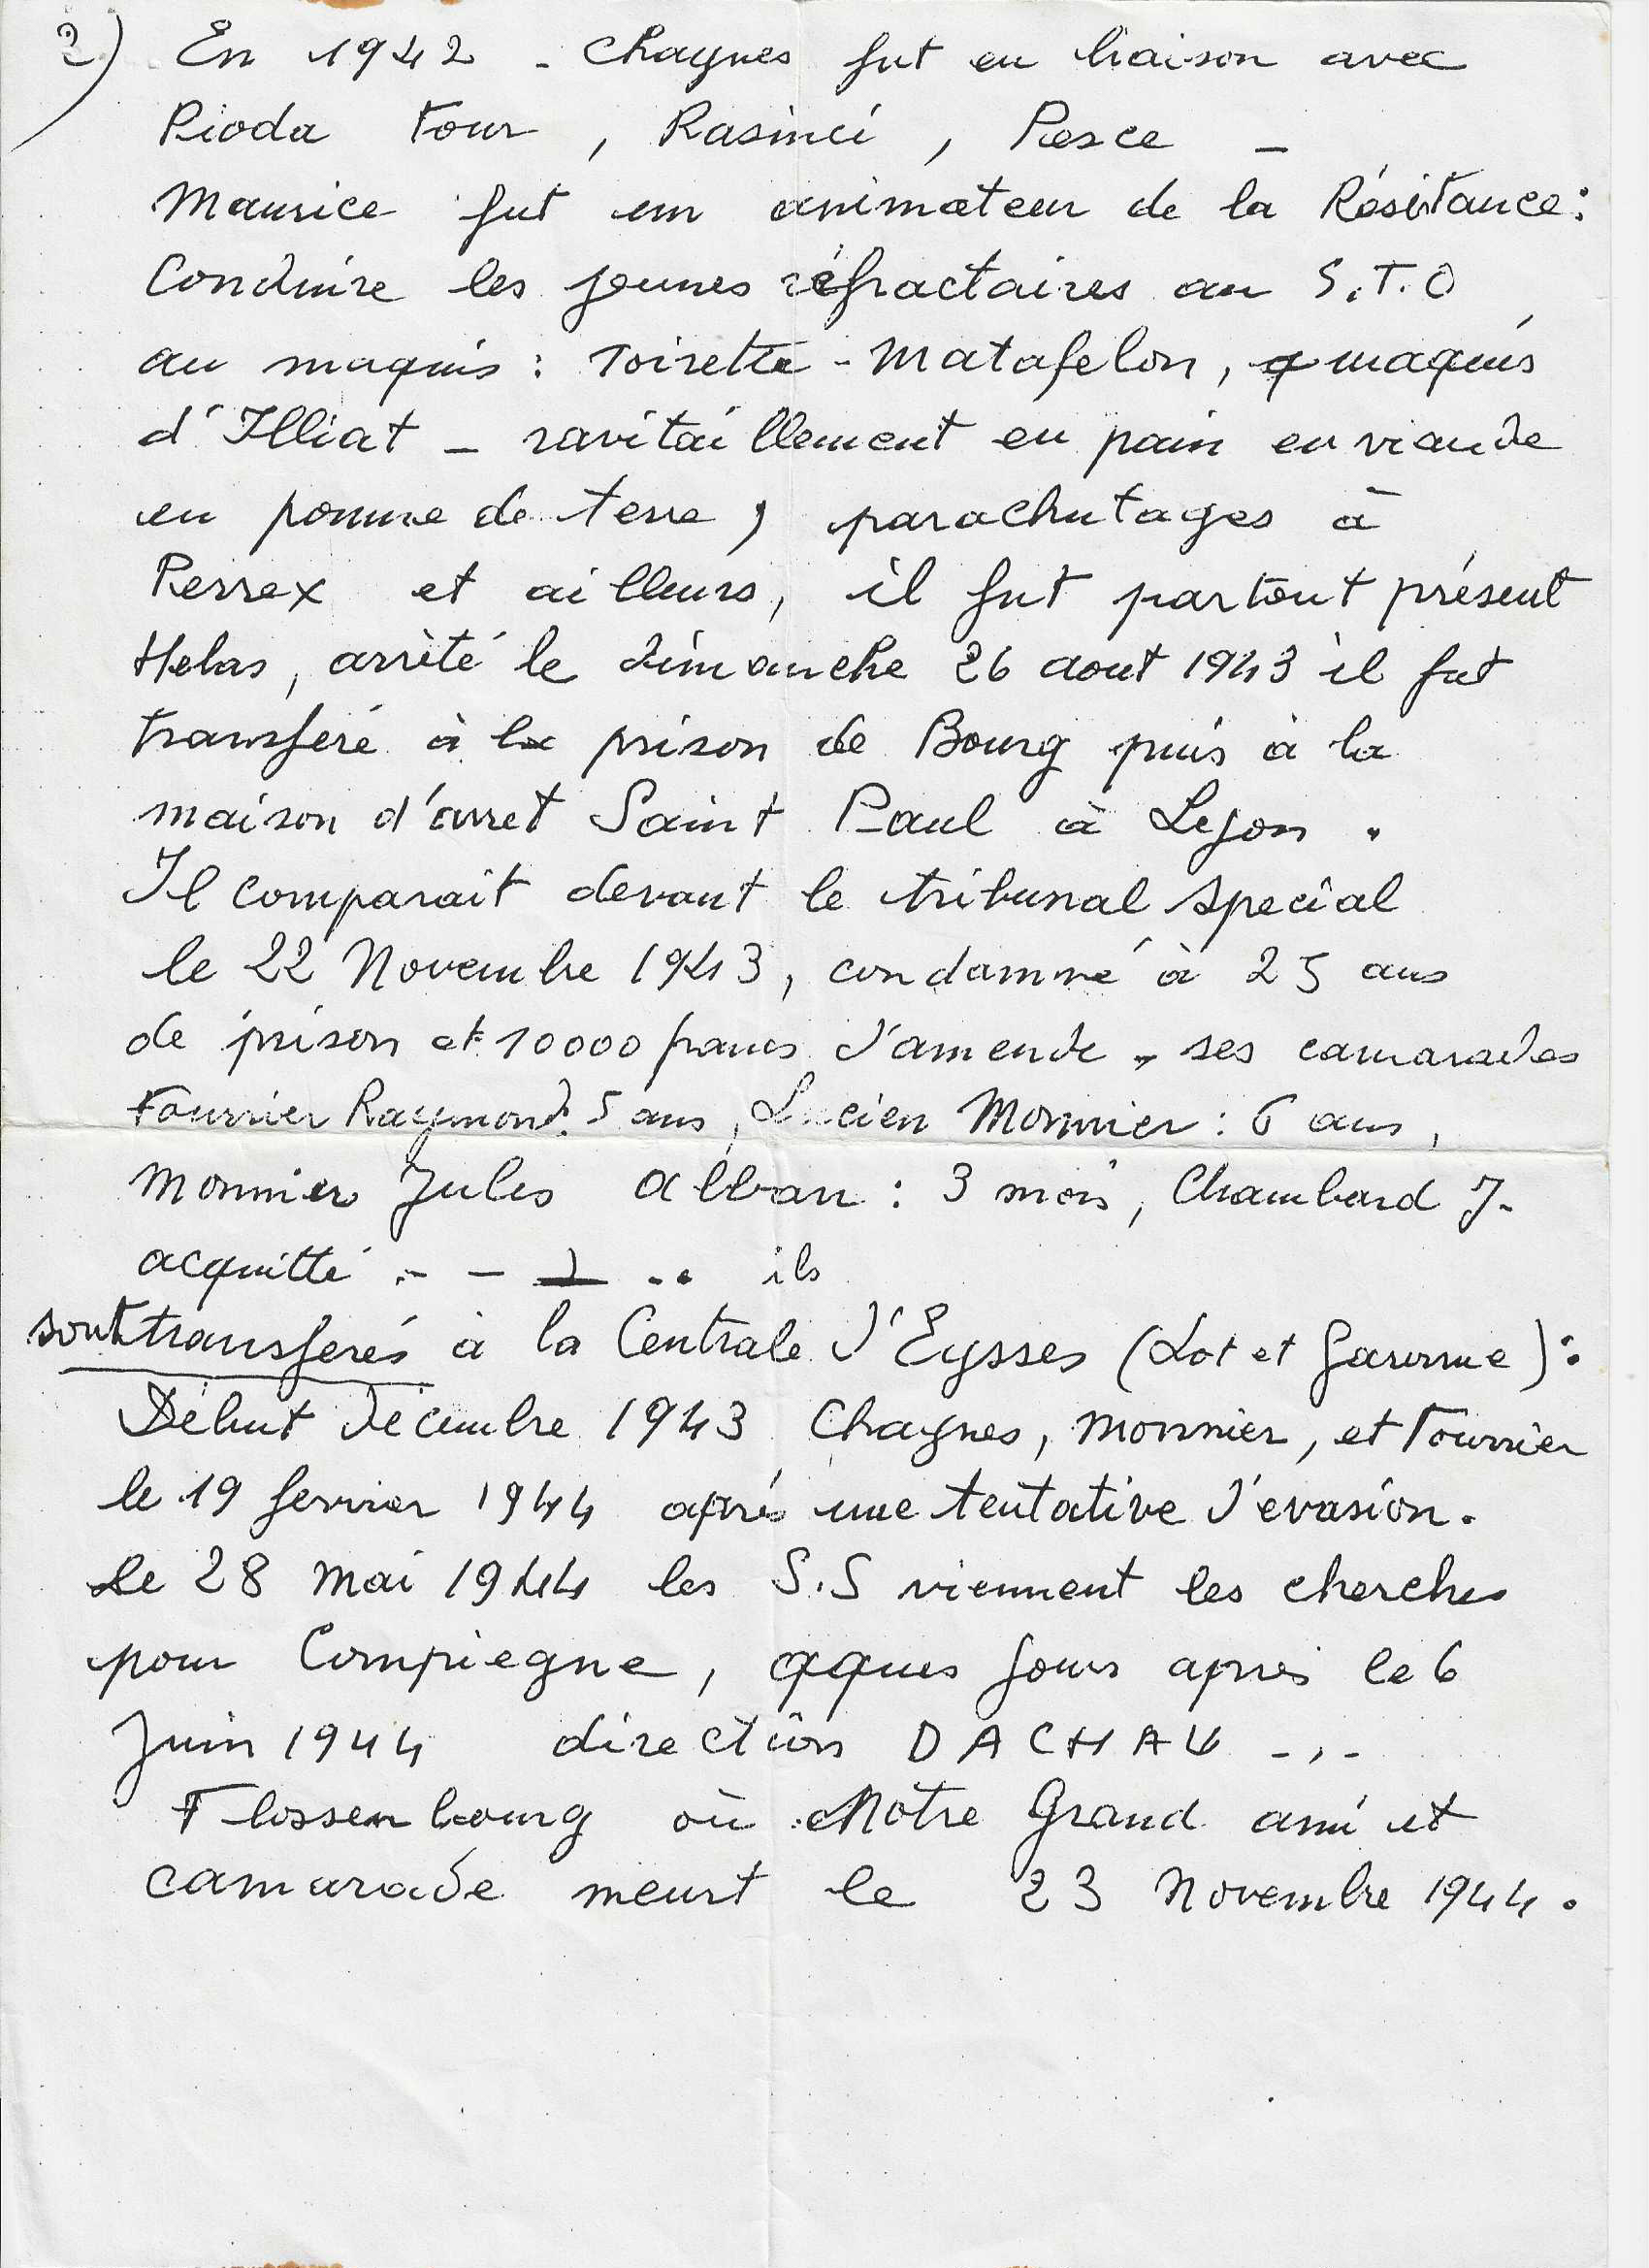 2) En 1942 - Chagnes fut en liaison avec
Pioda Tour, Rasinci, Pesce -
Maurice fut un animateur de la Résistance:
Conduire les jeunes réfractaires au S.T.O
au maquis : Toirette - Matafelon, maquis
d'Illiat - ravitaillement en pain en viande
en pomme de terre, parachutages à
Perrex et ailleurs, il fut partout présent
Helas, arrêté le dimanche 26 aout 1943 il fut
transferé à la prison de Bourg puis à la
maison d'arret Saint Paul à Lyon.
Il comparait devant le tribunal special
le 22 Novembre 1943, condamné à 25 ans
de prison et 10000 francs d'amende, ses camarades
Fourrier Raymond: 5 ans, Lucien Monnier : 6 ans,
Monnier Jules Alban : 3 mois, Chambard J.
acquitté .- - .. ils
sont transferés à la Centrale d'Eysses (Lot et Garonne):
Début décembre 1943 Chagnes, Monnier, et Fourrier
le 19 fevrier 1944 après une tentative d'evasion.
le 28 Mai 1944 les S.S viennent les cherches
pour Compiegne, qques jours après le 6
Juin 1944 direction DACHAU -.-
Flossenbourg où Notre Grand ami et
camarade meurt le 23 Novembre 1944.